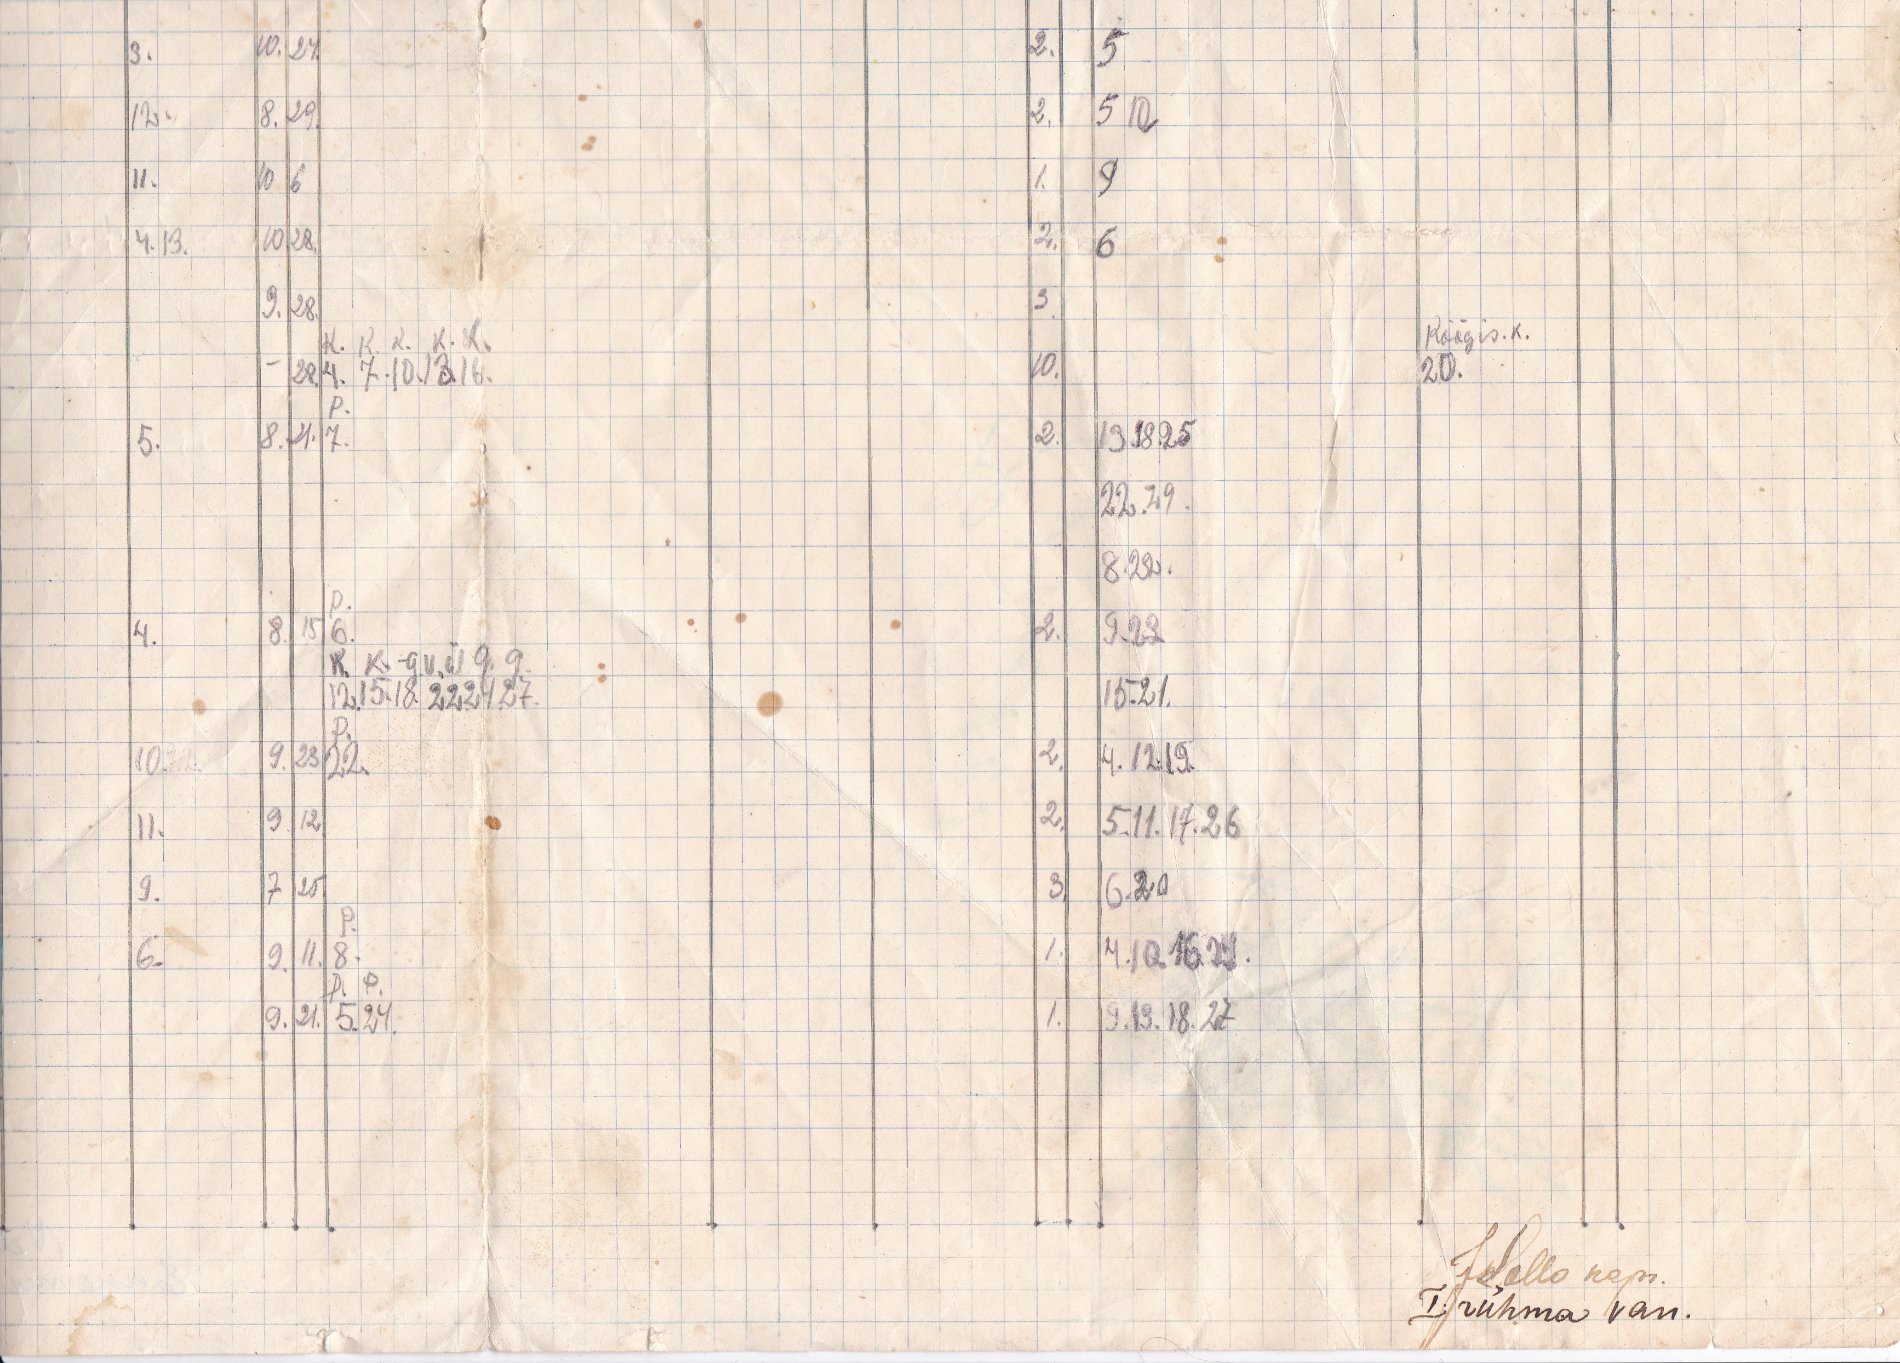 3. 10. 27. 2. 5
12. 8. 29. 2. 5 10
11. 10 6 1. 9
4. 13. 10 28. 2. 6
9. 28. 3.
K. K. K. K. K. Köögis. K.
- 28. 4. 7. 10. 13. 16. 10. 20.
P.
5. 8. 21. 7. 2. 13. 18. 25
22. 29.
8. 22.
P.
4. 8. 15 6. 2. 9. 23
K. K. g. v. ül g. g.
12. 15. 18. 22. 24. 27. 15. 21.
P.
10. 9. 23 22. 2. 4. 12. 19.
11. 9. 12 2. 5. 11. 17. 26
9. 7 25 3. 6. 20
P.
6. 9. 11. 8. 1. 4. 10. 16.
P. P.
9. 21. 5. 24. 1. 9. 13. 18. 27
kapr.
I rühma van.